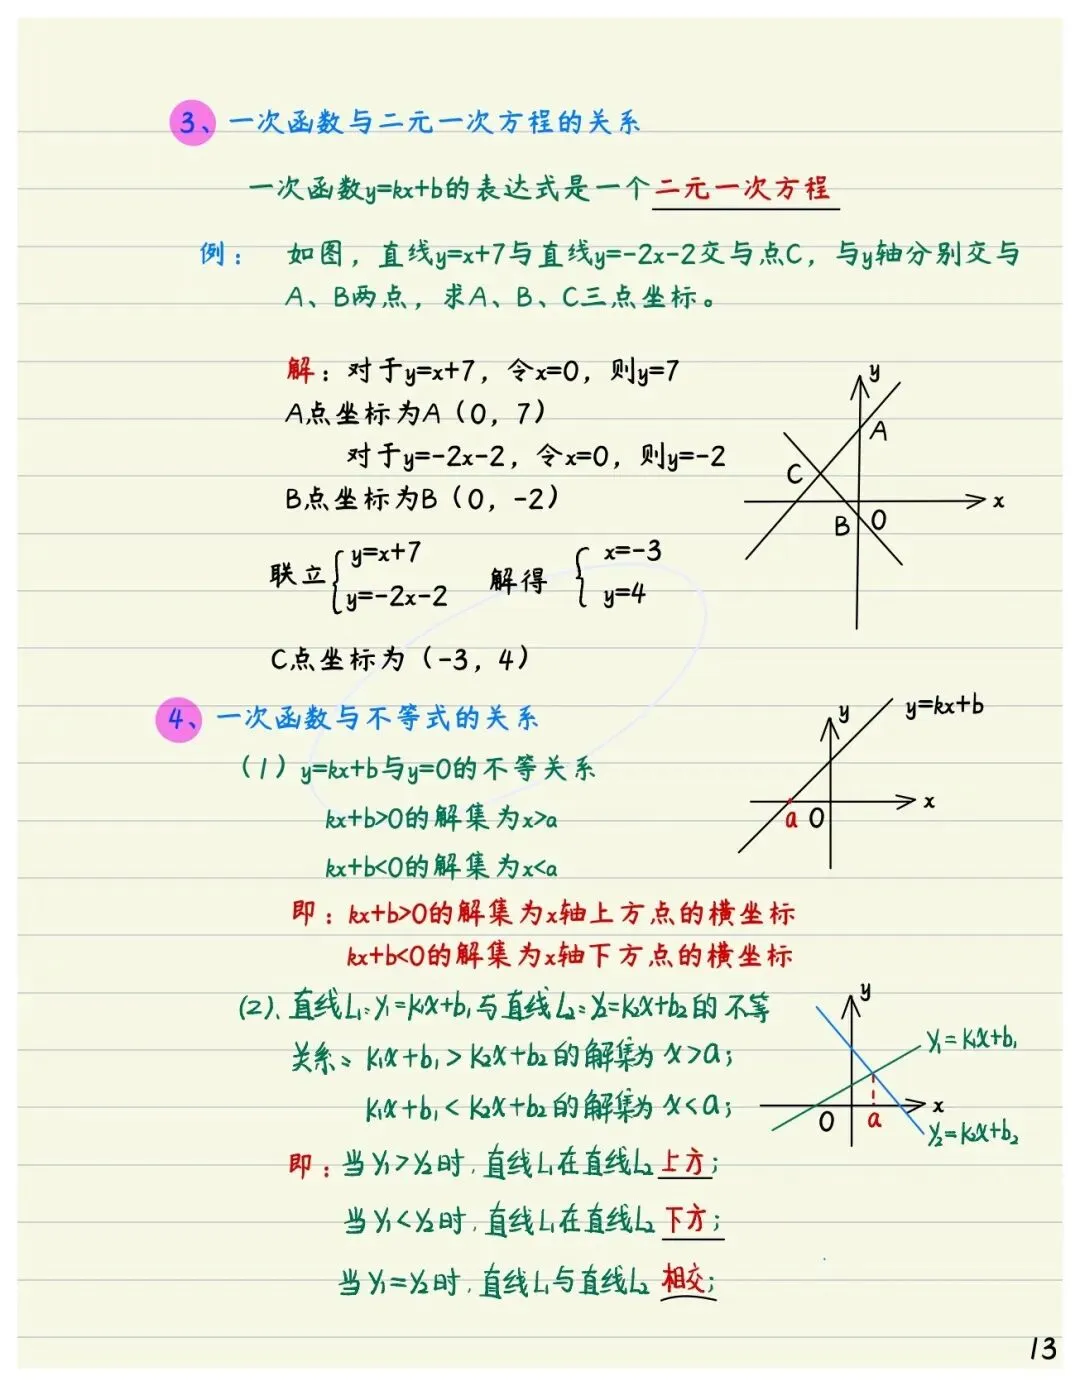 3、一次函数与二元一次方程的关系
一次函数y=kx+b的表达式是一个二元一次方程
例： 如图，直线y=x+7与直线y=-2x-2交与点C，与y轴分别交与
A、B两点，求A、B、C三点坐标。
解：对于y=x+7，令x=0，则y=7
A点坐标为A（0，7）
对于y=-2x-2，令x=0，则y=-2
B点坐标为B（0，-2）
联立{y=x+7
y=-2x-2
解得{x=-3
y=4
C点坐标为（-3，4）
y
A
C
x
B
O
4、一次函数与不等式的关系
（1）y=kx+b与y=0的不等关系
kx+b>0的解集为x>a
kx+b<0的解集为x<a
即：kx+b>0的解集为x轴上方点的横坐标
kx+b<0的解集为x轴下方点的横坐标
y
y=kx+b
x
a
O
(2)、直线L₁：y₁=k₁x+b₁与直线L₂：y₂=k₂x+b₂的不等
关系：k₁x+b₁>k₂x+b₂的解集为x>a；
k₁x+b₁<k₂x+b₂的解集为x<a；
即：当y₁>y₂时，直线L₁在直线L₂上方；
当y₁<y₂时，直线L₁在直线L₂下方；
当y₁=y₂时，直线L₁与直线L₂相交；
y
y₁=k₁x+b₁
x
O
a
y₂=k₂x+b₂
13